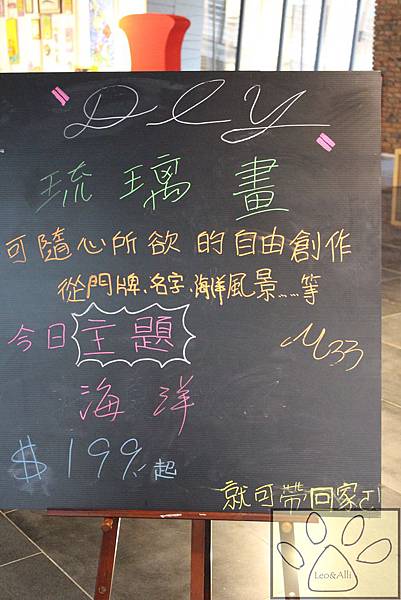 "DIY"
琉璃畫
可隨心所欲的自由創作
從門牌.名字.海洋風景......等
今日主題
M33
海洋
$199.-起
就可帶回家
Leo&Alli